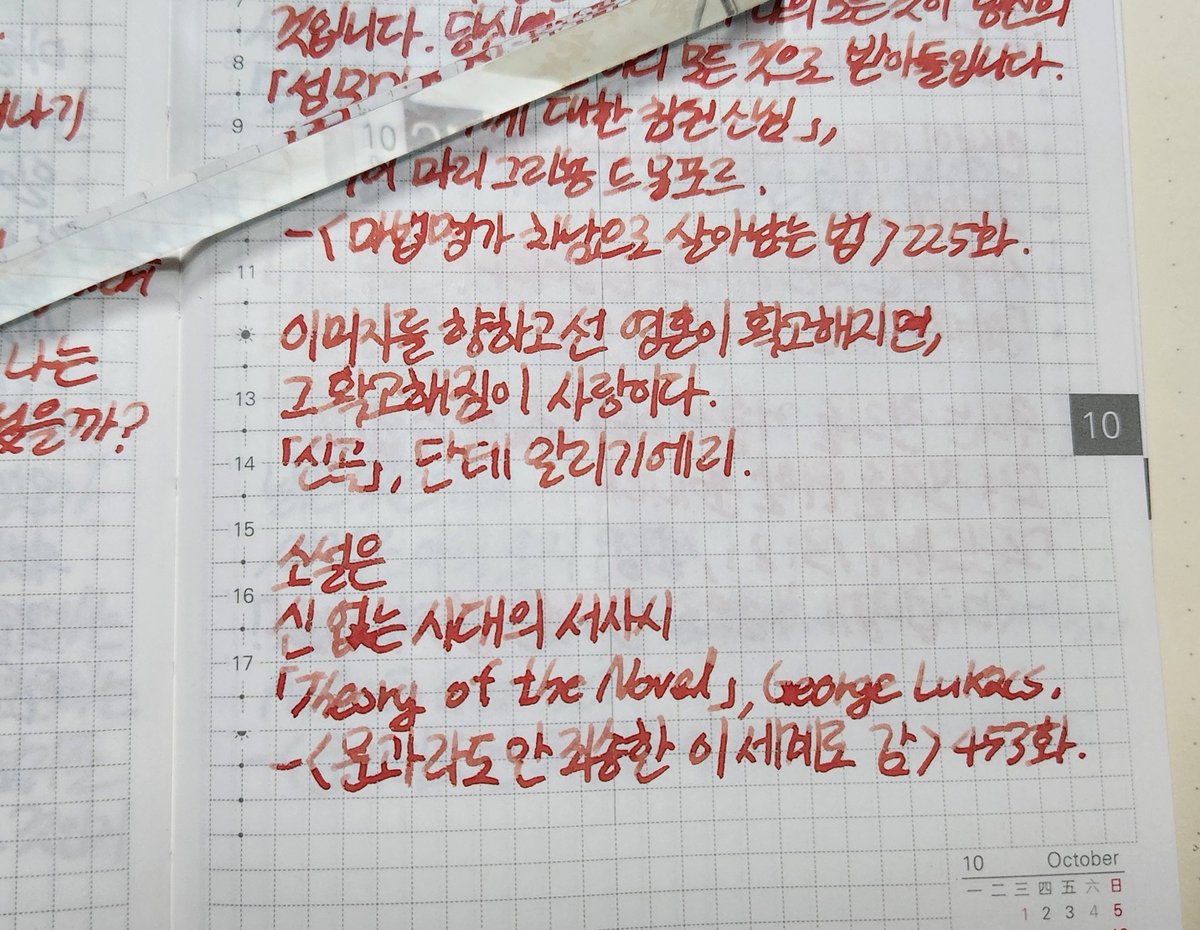 어나기
나는
었을까?
것입니다. 당신
모든 것이 당신의
모든 것으로 받아들입니다.
대한 헌신」,
마리 그리퐁 드
-<마법명가 차남으로 살아남는 법> 225화.
이미지를 향하고선 영혼이 확고해지면,
그 확고해짐이 사랑이다.
「신곡」, 단테 알리기에리.
소설은
신 없는 시대의 서사시
「Theory of the Novel」, George Lukacs.
-<문과라도 안 죄송한 이세계로 감> 453화.
8
9
10
11
13
14
15
16
17
10
10 October
一 二 三 四 五 六 日
1 2 3 4 5